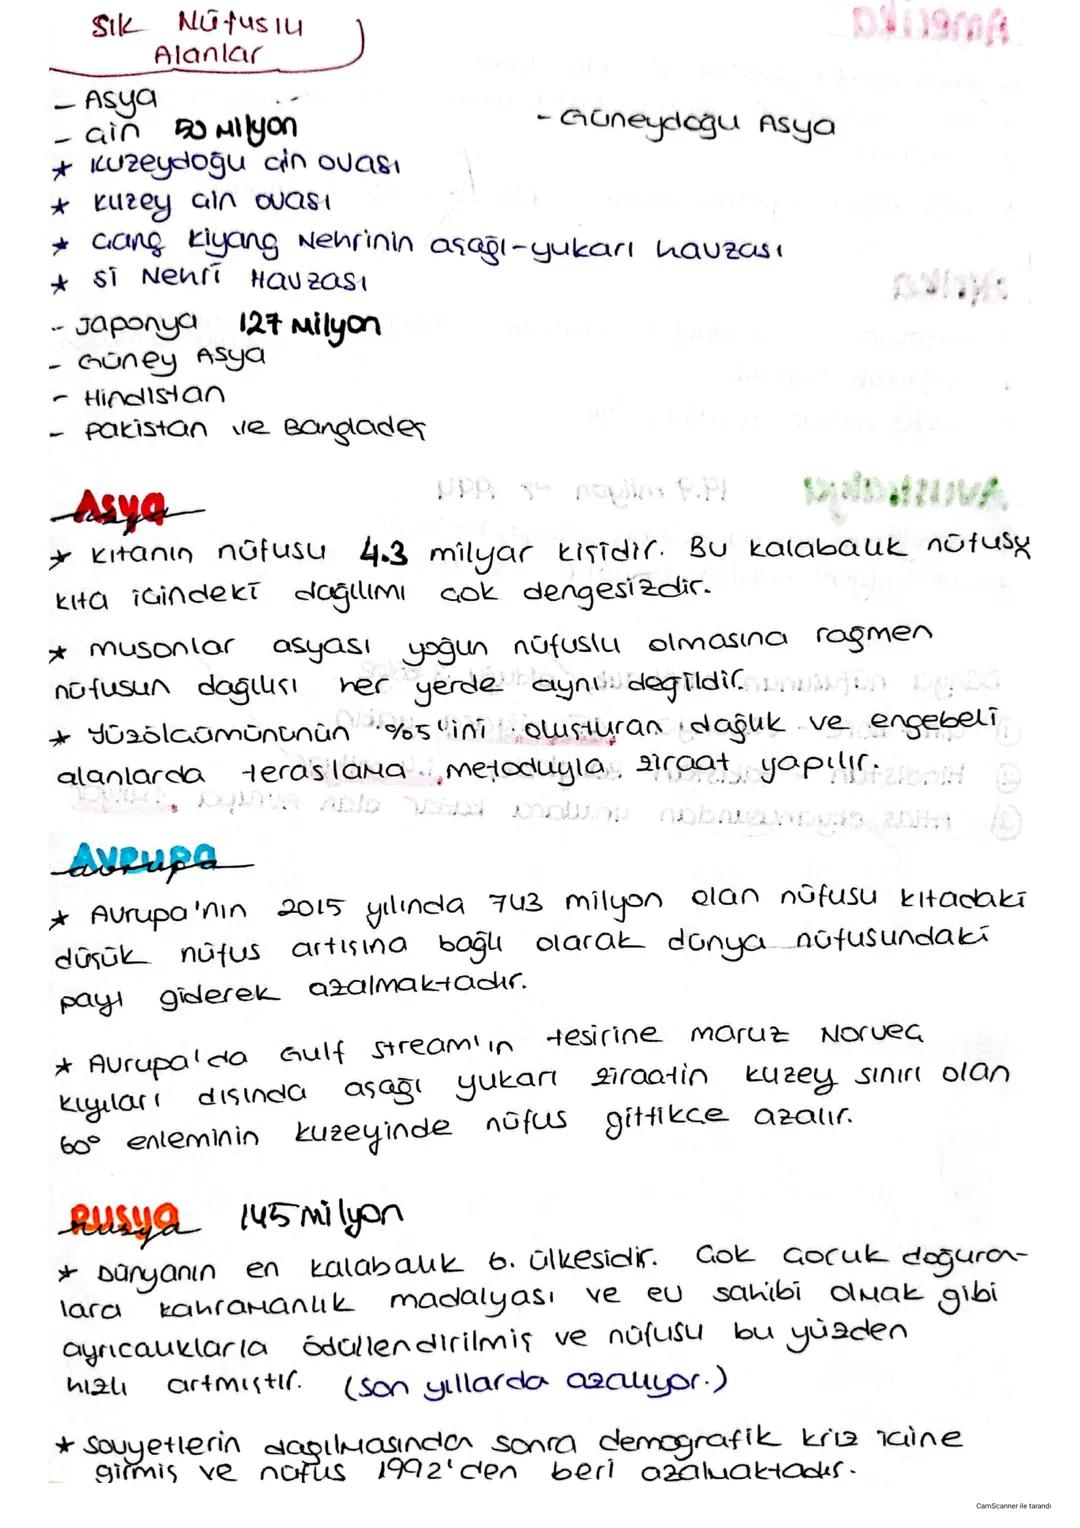 Sık Nüfuslu
Alanlar
- Asya
- Çin 50 Milyon
- Güneydoğu Asya
* Kuzeydoğu Çin ovası
* Kuzey Çin ovası
* Gang Kiyang Nehrinin aşağı-yukarı havzası
* Si Nehri Havzası
- Japonya 127 Milyon
- Güney Asya
- Hindistan
- Pakistan ve Bangladeş
Asya
* Kıtanın nüfusu 4.3 milyar kişidir. Bu kalabalık nüfusu
kıta içindeki dağılımı çok dengesizdir.
* musonlar asyası yoğun nüfuslu olmasına rağmen
nüfusun dağılışı her yerde aynı değildir.
* Yüzölçümününün %5'ini oluşturan dağlık ve engebeli
alanlarda teraslama metoduyla ziraat yapılır.
Avrupa
* Avrupa'nın 2015 yılında 743 milyon olan nüfusu kıtadaki
düşük nüfus artışına bağlı olarak dünya nüfusundaki
payı giderek azalmaktadır.
* Avrupa'da Gulf Stream'in tesirine maruz Norveç
kıyıları dışında aşağı yukarı ziraatin kuzey sınırı olan
60° enleminin kuzeyinde nüfus gittikçe azalır.
Rusya 145 Milyon
* Dünyanın en kalabalık 6. ülkesidir. Çok çocuk doğuran-
lara kahramanlık madalyası ve ev sahibi olmak gibi
ayrıcalıklarla ödüllendirilmiş ve nüfusu bu yüzden
hızlı artmıştır. (son yıllarda azalıyor.)
* Sovyetlerin dağılmasından sonra demografik kriz içine
girmiş ve nüfus 1992'den beri azalmaktadır.
CamScanner ile tarandı